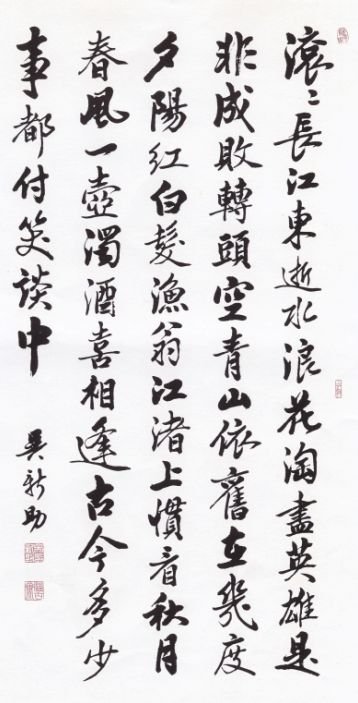 滾〻長江東逝水浪花淘盡英雄是
非成敗轉頭空青山依舊在幾度
夕陽紅白髮漁翁江渚上慣看秋月
春風一壺濁酒喜相逢古今多少
事都付笑談中
吳新助